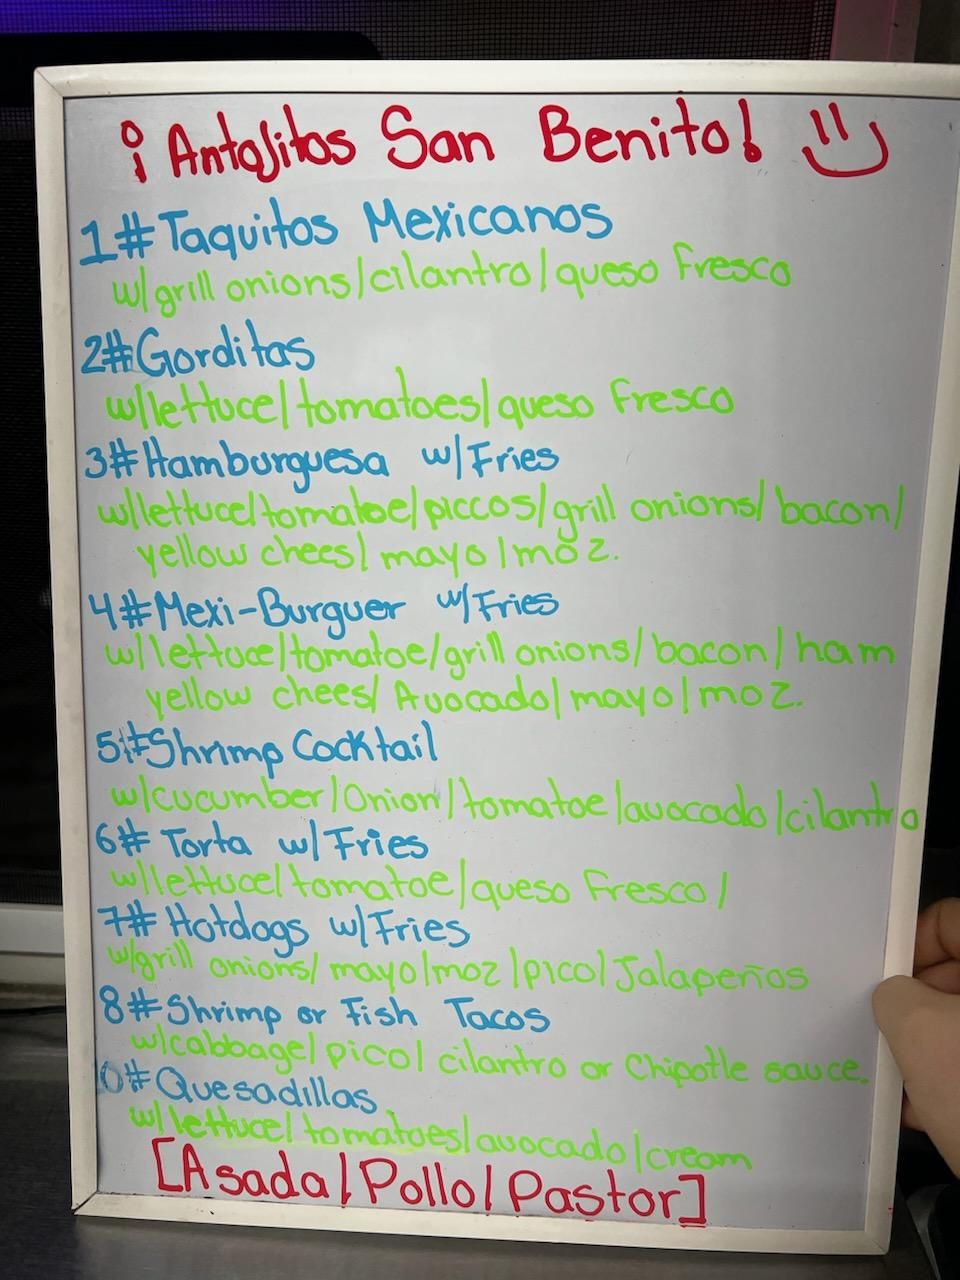 ¡Antojitos San Benito!
1#Taquitos Mexicanos
w/grill onions/cilantro/queso Fresco
2#Gorditas
w/lettuce/tomatoes/queso Fresco
3#Hamburguesa w/Fries
w/lettuce/tomatoe/piccos/grill onions/bacon/
yellow chees/mayo/moz.
4#Mexi-Burguer w/Fries
w/lettuce/tomatoe/grill onions/bacon/ham
yellow chees/Avocado/mayo/moz.
5#Shrimp Cocktail
w/cucumber/Onion/tomatoe/avocado/cilantro
6# Torta w/Fries
w/lettuce/tomatoe/queso Fresco/
7# Hotdogs w/Fries
w/grill onions/mayo/moz/pico/Jalapeños
8#Shrimp or Fish Tacos
w/cabbage/pico/cilantro or Chipotle sauce.
0#Quesadillas
w/lettuce/tomatoes/avocado/cream
[Asada/Pollo/Pastor]